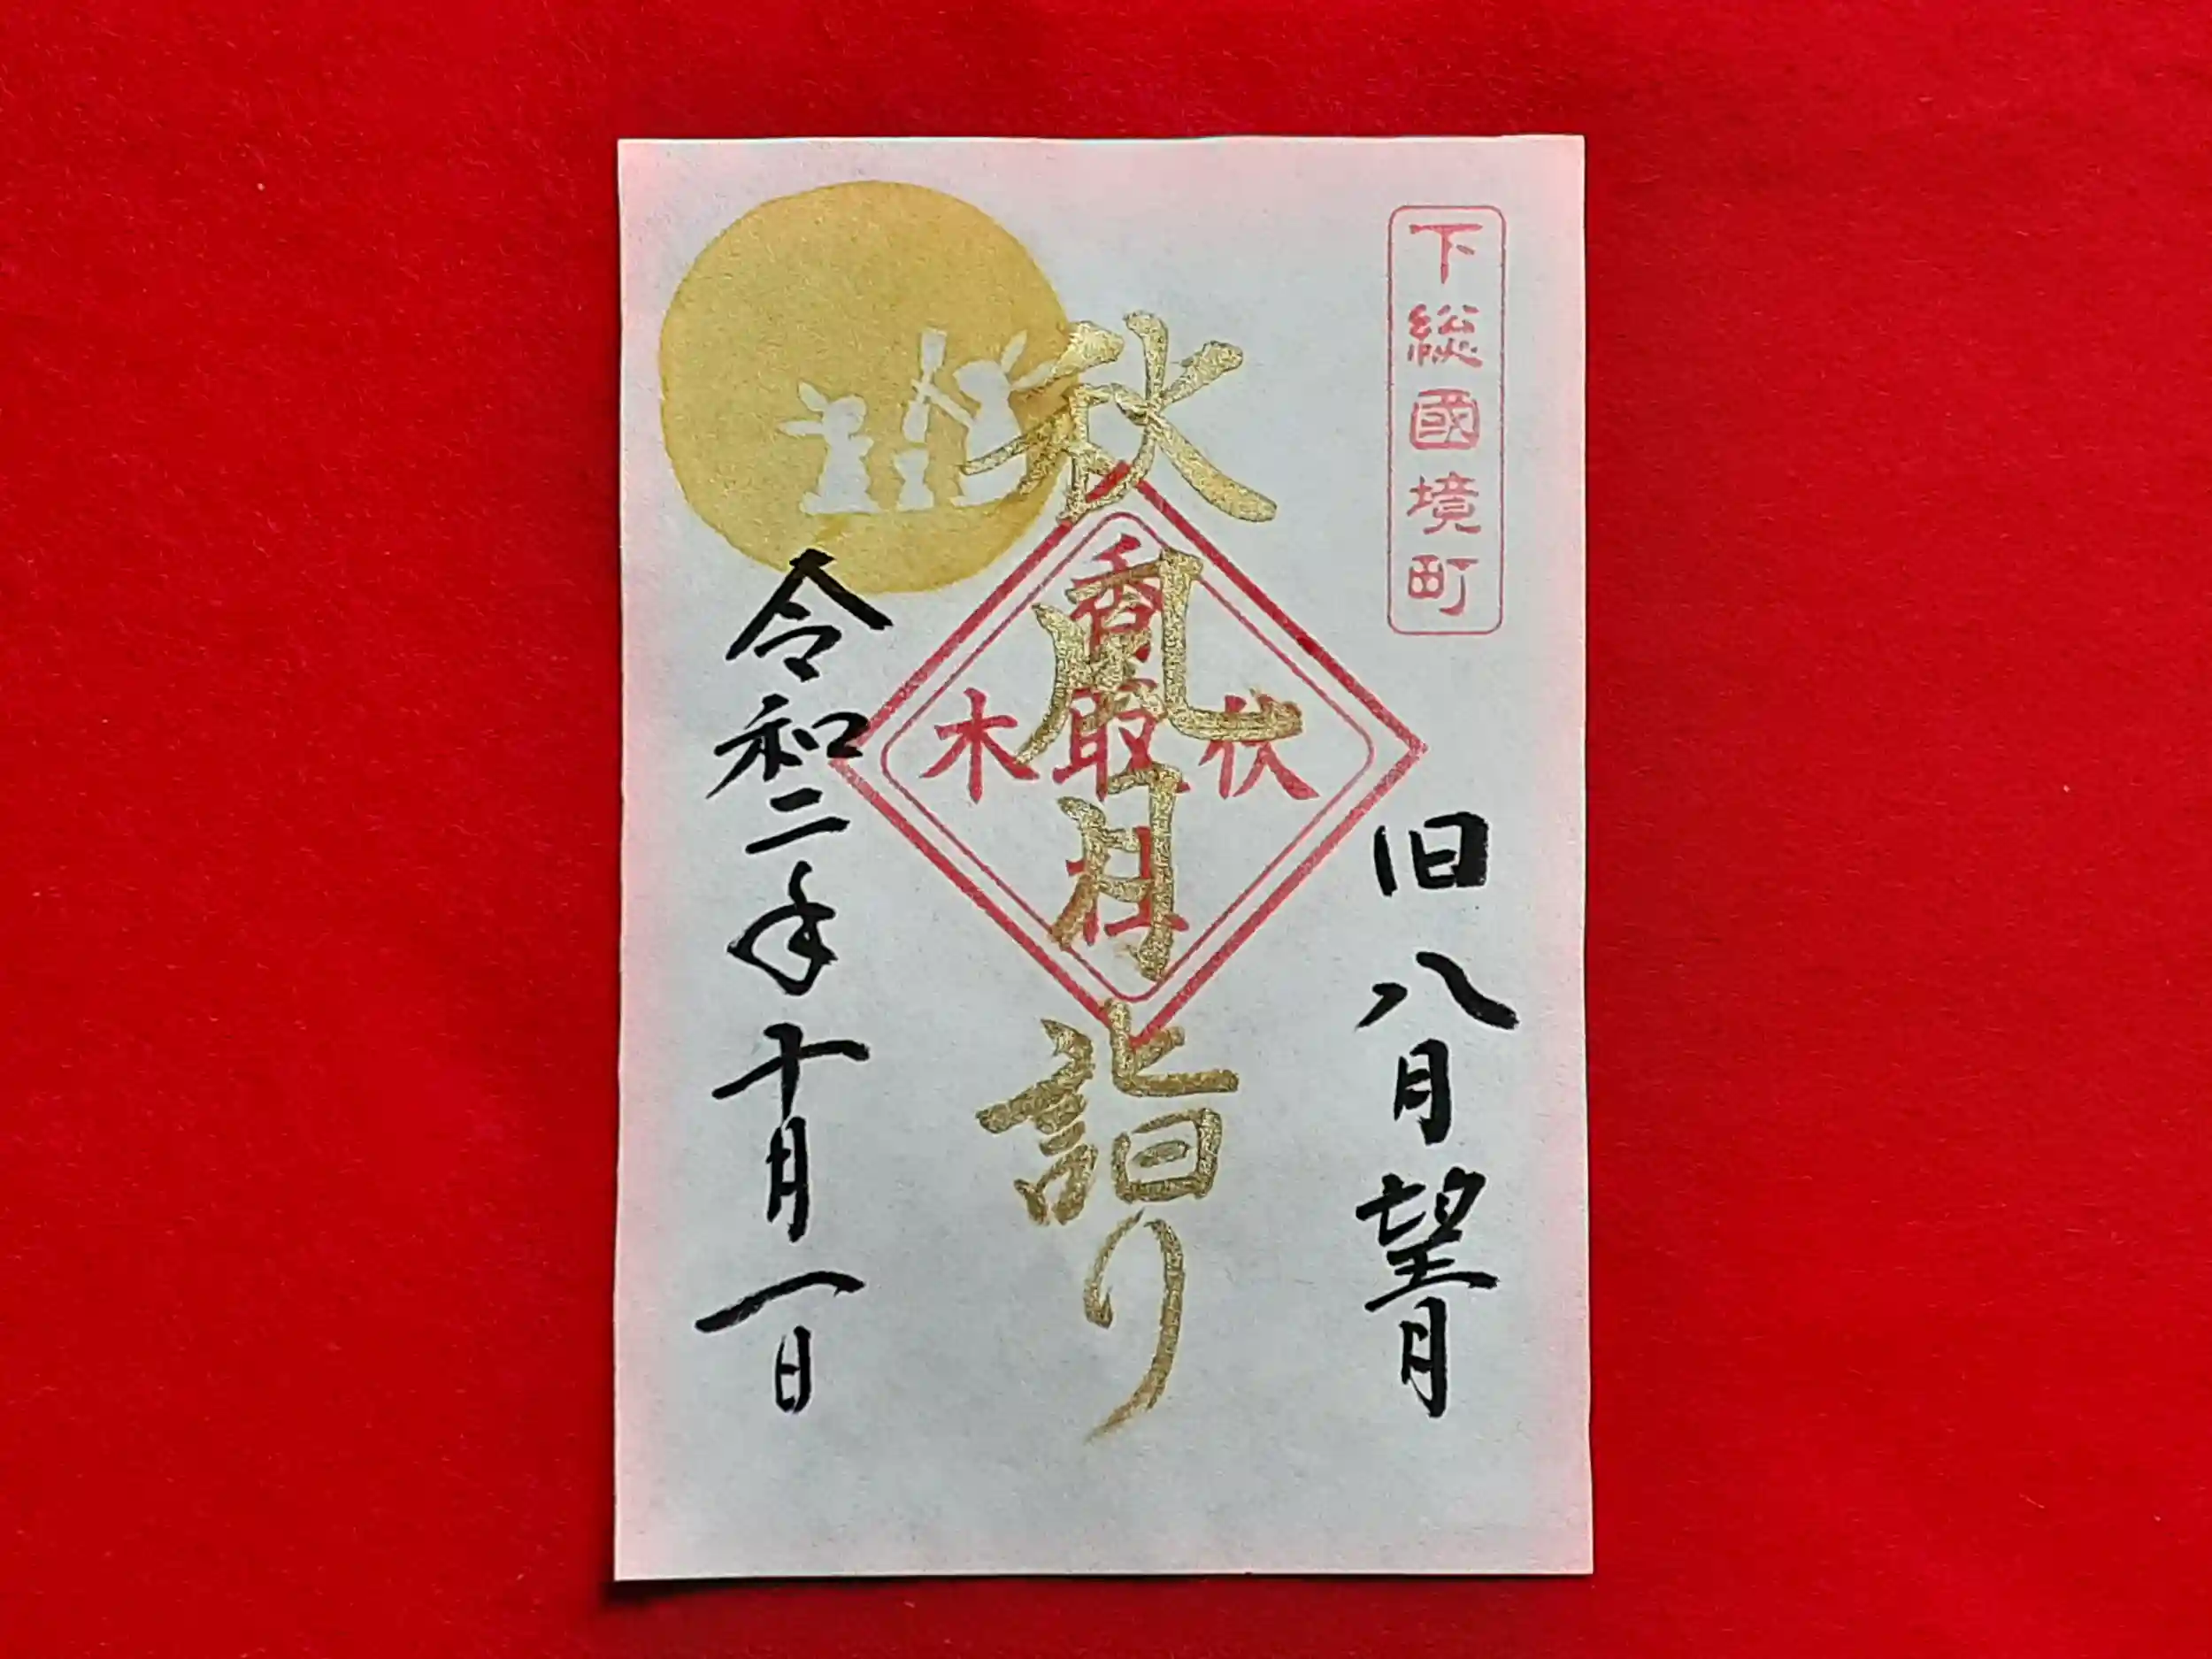 下総國境町
旧八月望月
秋風月詣り
伏木
香取社
令和二年十月一日